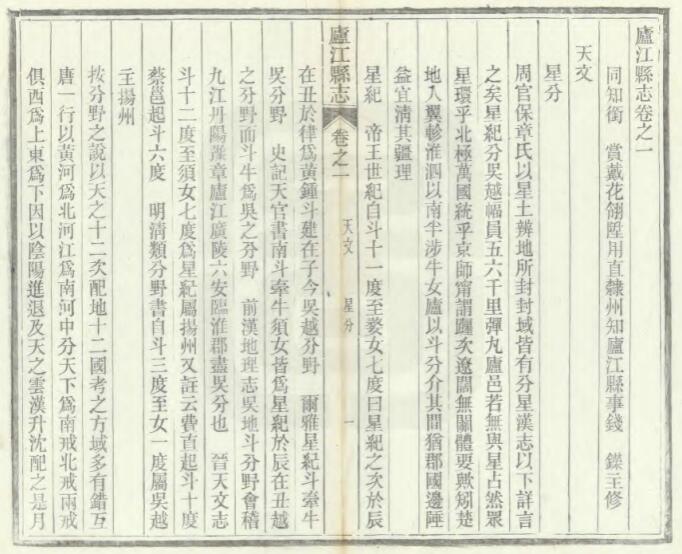 廬江縣志卷之一
同知銜 賞戴花翎陞用直隸州知廬江縣事錢 鑅主修
天文
星分
周官保章氏以星土辨地所封封域皆有分星漢志以下詳言
之矣星紀分吳越幅員五六千里彈丸廬邑若無與星占然眾
星環乎北極萬國統乎京師甯謂躔次遼闊無關體要歟矧楚
地入翼軫淮泗以南半涉牛女廬以斗分介其間猶郡國邊陲
益宜清其疆理
星紀 帝王世紀自斗十一度至婺女七度曰星紀之次於辰
廬江縣志 卷之一 天文 星分 一
在丑於律爲黃鍾斗建在子今吳越分野 爾雅星紀斗牽牛
吳分野 史記天官書南斗牽牛須女皆爲星紀於辰在丑越
之分野而斗牛爲吳之分野 前漢地理志吳地斗分野會稽
九江丹陽豫章廬江廣陵六安臨淮郡盡吳分也 晉天文志
斗十二度至須女七度爲星紀屬揚州又註云費直起斗十度
蔡邕起斗六度 明清類分野書自斗三度至女一度屬吳越
主揚州
按分野之說以天之十二次配地十二國考之方域多有錯互
唐一行以黃河爲北河江爲南河中分天下爲南戒北戒兩戒
俱西爲上東爲下因以陰陽進退及天之雲漢升沈配之是月